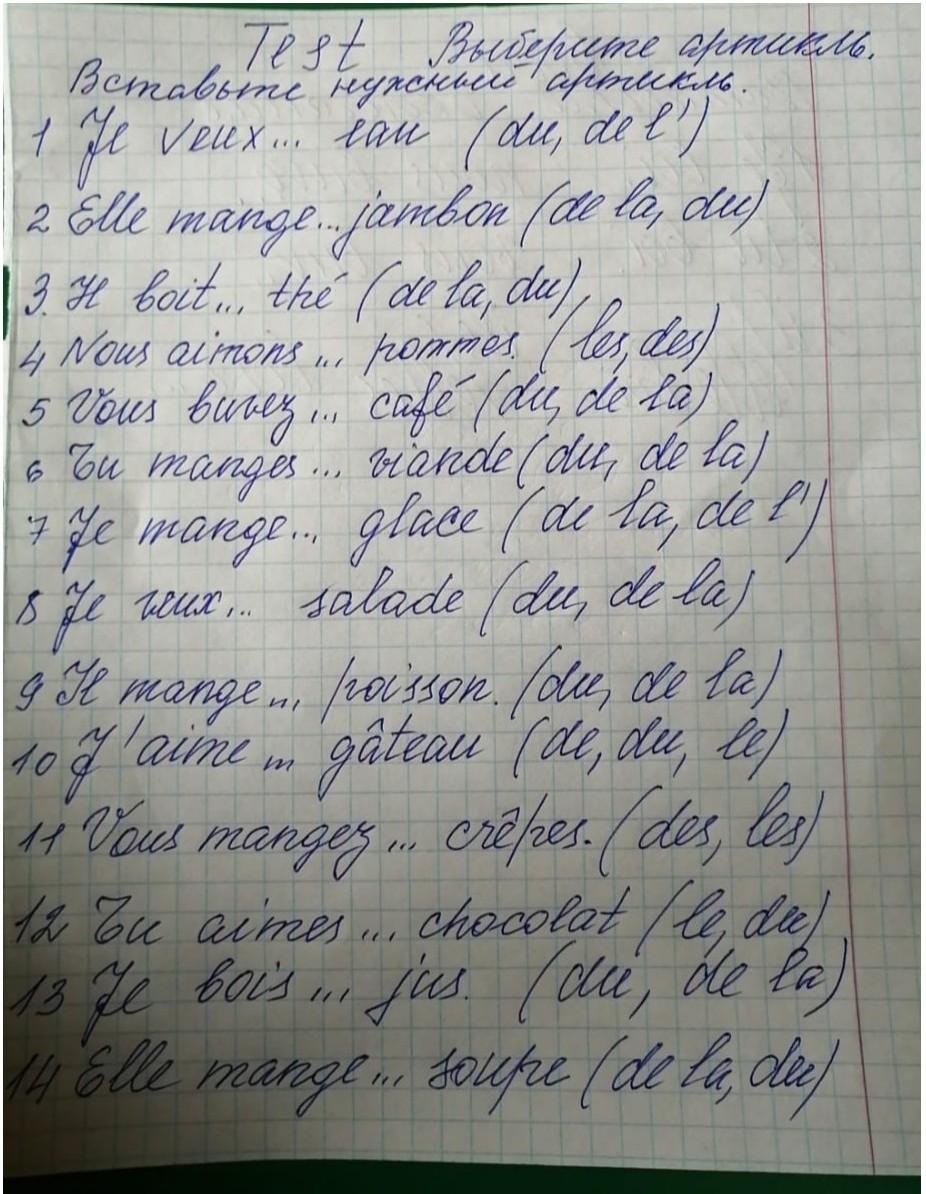 Test Выберите артикль.
Вставьте нужный артикль.
1 Je veux... eau (du, de l')
2 Elle mange... jambon (de la, du)
3. Il boit... thé (de la, du),
4 Nous aimons ... pommes. (les, des)
5 Vous buvez ... café (du, de la)
6 Tu manges ... viande (du, de la)
7 Je mange... glace (de la, de l')
8 Je veux... salade (du, de la)
9 Il mange ... poisson. (du, de la)
10 J'aime ... gâteau (de, du, le)
11 Vous mangez... crêpes. (des, les)
12 Tu aimes ... chocolat (le, du)
13 Je bois ... jus. (du, de la)
14 Elle mange... soupe (de la, du)